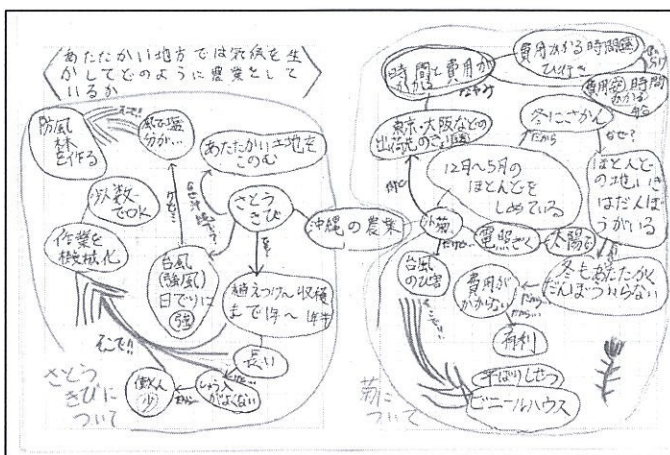 あたたかい地方では気候を生
かしてどのように農業をして
いるか
防風
林
を作る
そこで!!
風で塩
分が…
あたたかい土地を
このむ
少人数
でOK
作業を
機械化
さとう
きび
沖縄の農業
台風
(強風)
日でりに
強
植えつけ〜収穫
まで1年〜1年半
長い
そこで!!
働く人
少
しゅう入
がよくない
さとう
きびに
ついて
時間と費用が
かかる
なやみ
費用かかる時間短
ひ行き
費用安時間
かかる
船
東京・大阪などの
出荷先のきょり
冬にさかん
だから
なぜ?
12月〜5月の
ほとんどを
しめている
ほとんど
の地いき
はだんぼ
うがいる
小菊
だけど…
電照ぎく
太陽
台風
のひ害
費用が
かからない
だから…
冬もあたたかく
だんぼういらない
有利
平ばりしせつ
ビニールハウス
菊に
ついて